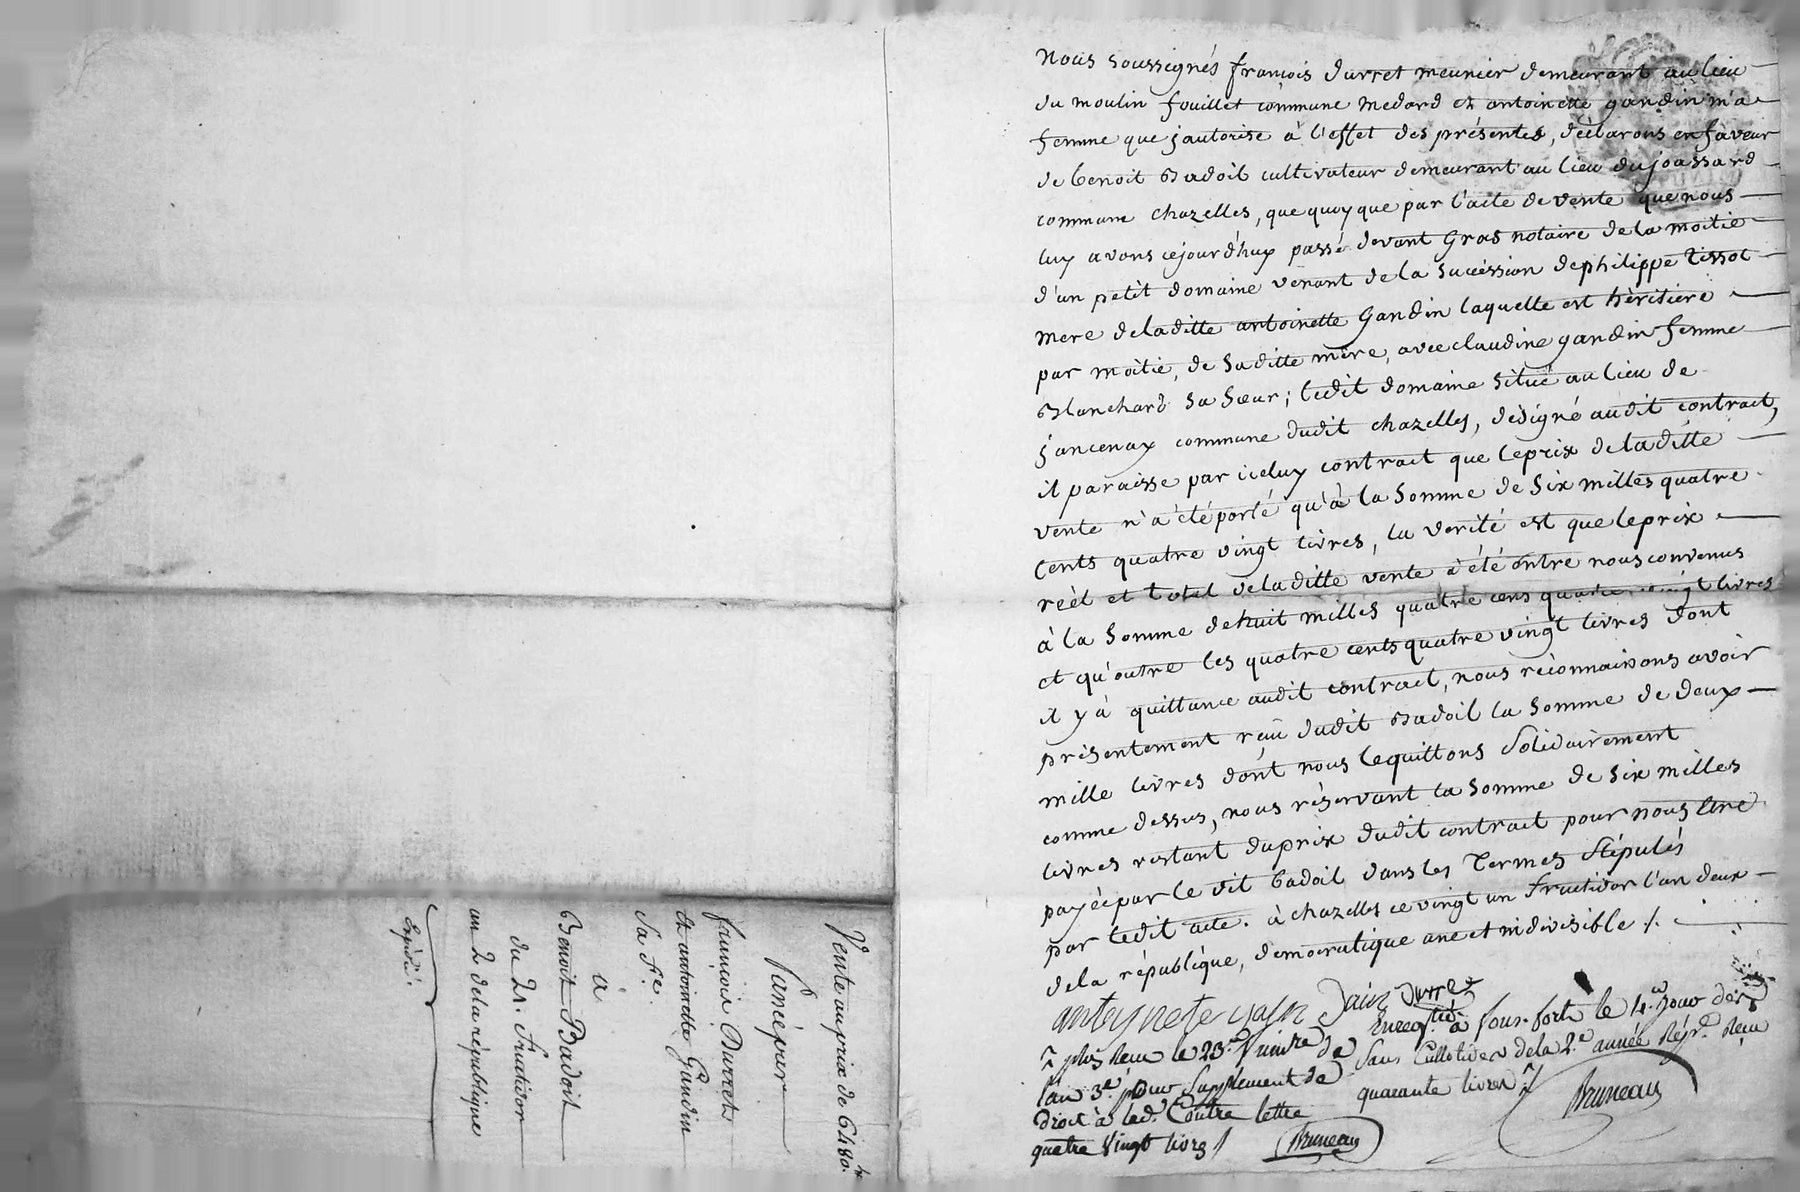 Nous soussignés françois durret meunier demeurant au lieu
du moulin fouillet commune medard et antoinette gandin ma
femme que j'autorise à l'effet des présentes, déclarons en faveur
de benoit Badoil cultivateur demeurant au lieu du joassard
commune chazelles, que quoyque par l'acte de vente que nous
luy avons cejourd'huy passé devant Gras notaire de la moitié
d'un petit domaine venant de la succéssion de philippe tissot
mere de laditte antoinette Gandin laquelle est héritiere
par moitié, de saditte mère, avec claudine gandin femme
Blanchard sa sœur; ledit domaine situé au lieu de
jancenay commune dudit chazelles, désigné audit contract,
il paraisse par iceluy contract que le prix de laditte
vente n'a été porté qu'à la somme de six milles quatre
cents quatre vingt livres, la verité est que le prix
réèl et total de laditte vente a été entre nous convenus
à la somme de huit milles quatre cens quatre vingt livres
et qu'outre les quatre cents quatre vingt livres dont
il y à quittance audit contract, nous réconnaissons avoir
présentement reçu dudit Badoil la somme de deux
mille livres dont nous le quittons solidairement
comme dessus, nous réservant la somme de six milles
livres restant du prix dudit contract pour nous être
payée par le dit badoil dans les termes stipulés
par ledit acte. à chazelles ce vingt un fructidor l'an deux
de la république, démocratique une et indivisible /.
durret
Enregtré à Sour-fort le 4.e jour des
Sans Cullotides de la 2.e année Rép.e Reçu
quarante livres
Bruneau
plus Reçu le 23.
l'an 3.e pour Supplément de
droit à lad. Contre lettre
quatre vingt livres /
Bruneau
Vente au prix de 6480.#
françois Durret
et antoinette Gandin
Sa f.e
à
Benoit Badoil
du 21. fructidor
an 2 de la république
Expédié.